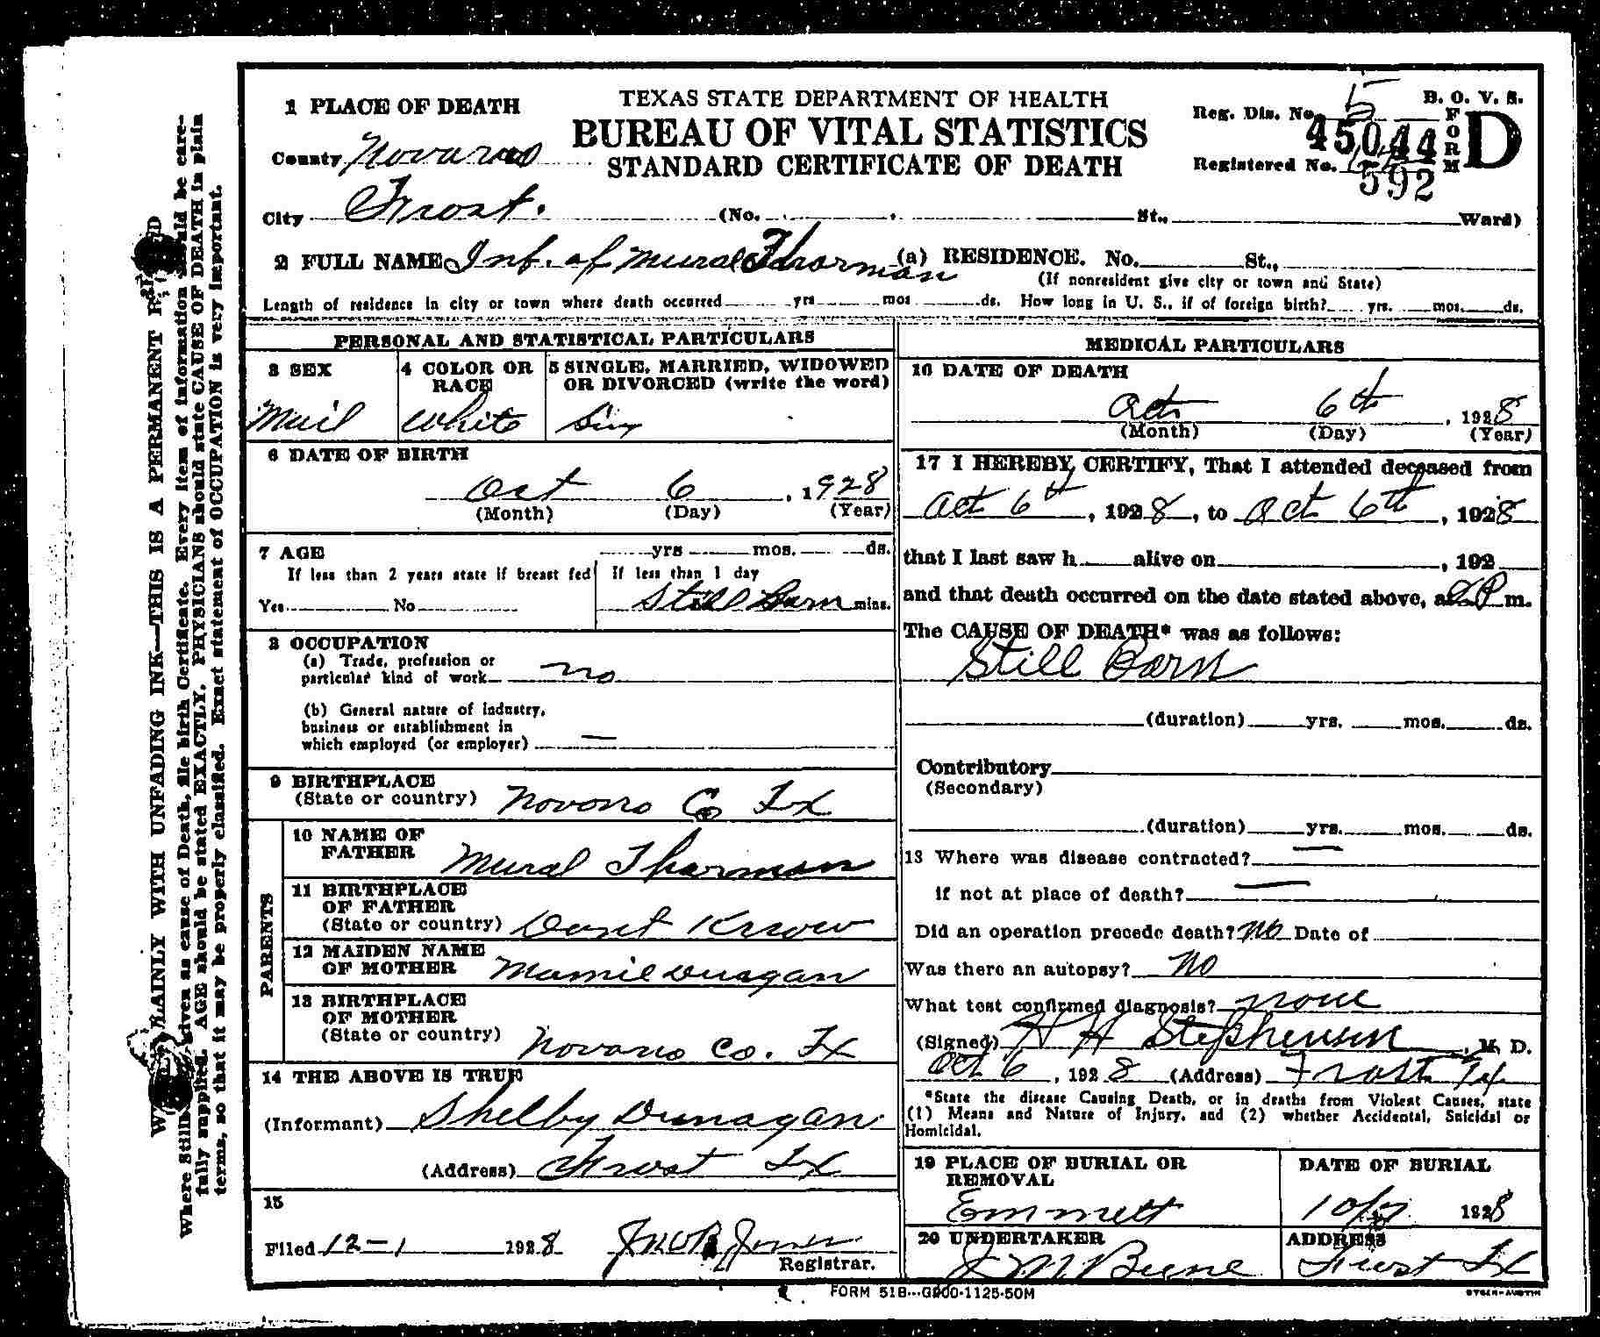 1 PLACE OF DEATH
TEXAS STATE DEPARTMENT OF HEALTH
BUREAU OF VITAL STATISTICS
STANDARD CERTIFICATE OF DEATH
B. O. V. S.
FORM D
Reg. Dis. No. 5
45044
Registered No.
592
County Novarro
City Frost. (No. St., Ward)
2 FULL NAME Inf. of Mural Thorman (a) RESIDENCE. No. St.,
(If nonresident give city or town and State)
Length of residence in city or town where death occurred yrs mos ds. How long in U. S., if of foreign birth? yrs. mos. ds.
PERSONAL AND STATISTICAL PARTICULARS
3 SEX
Mail
4 COLOR OR RACE
White
5 SINGLE, MARRIED, WIDOWED
OR DIVORCED (write the word)
Sin
6 DATE OF BIRTH
Oct 6, 1928
(Month) (Day) (Year)
7 AGE yrs mos. ds.
If less than 2 years state if breast fed
Yes No
If less than 1 day
Still Born mins.
8 OCCUPATION
(a) Trade, profession or
particular kind of work no
(b) General nature of industry,
business or establishment in
which employed (or employer) —
9 BIRTHPLACE
(State or country) Novarro Co Tx
PARENTS
10 NAME OF
FATHER Mural Thorman
11 BIRTHPLACE
OF FATHER
(State or country) Dont Know
12 MAIDEN NAME
OF MOTHER Mamie Dunagan
13 BIRTHPLACE
OF MOTHER
(State or country) Novarro Co. Tx
14 THE ABOVE IS TRUE
(Informant) Shelby Dunagan
(Address) Frost Tx
15
Filed 12-1 1928 Jno R Jones
Registrar.
MEDICAL PARTICULARS
16 DATE OF DEATH
Oct 6th, 1928
(Month) (Day) (Year)
17 I HEREBY CERTIFY, That I attended deceased from
Oct 6th, 1928, to Oct 6th, 1928
that I last saw h alive on , 192
and that death occurred on the date stated above, at P m.
The CAUSE OF DEATH* was as follows:
Still Born
(duration) yrs. mos. ds.
Contributory
(Secondary)
(duration) yrs. mos. ds.
18 Where was disease contracted? —
if not at place of death? —
Did an operation precede death? No Date of
Was there an autopsy? No
What test confirmed diagnosis? none
(Signed) H H Stephenson, M. D.
Oct 6, 1928 (Address) Frost Tx
*State the disease Causing Death, or in deaths from Violent Causes, state
(1) Means and Nature of Injury, and (2) whether Accidental, Suicidal or
Homicidal.
19 PLACE OF BURIAL OR
REMOVAL
Emmett
DATE OF BURIAL
10/7 1928
20 UNDERTAKER
J M Bune
ADDRESS
Frost Tx
FORM 51B---G200-1125-50M
STECK-AUSTIN
PLAINLY WITH UNFADING INK—THIS IS A PERMANENT
given as cause of Death, file birth Certificate. Every item of information should be care-
fully supplied. AGE should be stated EXACTLY. PHYSICIANS should state CAUSE OF DEATH in plain
terms, so that it may be properly classified. Exact statement of OCCUPATION is very important.